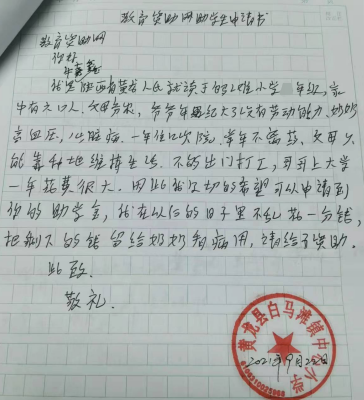 教育资助网助学生申请书
教育资助网
你好
我是陕西省黄龙人氏就读于白马滩小学 年级，家
中有六口人，父母务农，爷爷年纪大了没有劳动能力，奶奶
高血压，心脏病，一年住几次院，常年不离药，父母只
能靠种地维持生活，不能出门打工，哥哥上大学
一年花费很大，因此我迫切的希望可以申请到
你的助学金，我在以后的日子里不乱花一分钱，
把剩下的钱留给奶奶看病用，请给予资助。
此致
敬礼．
黄龙县白马滩镇中心小学
2021年9月22日